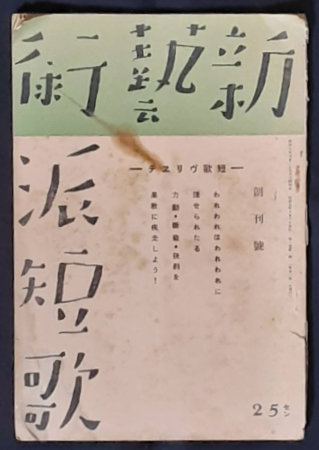 新藝術
派短歌
―短歌ヴリヱテ―
創刊號
われわれはわれわれに
課せられたる
力動・
果敢に疾走しよう！
25セン